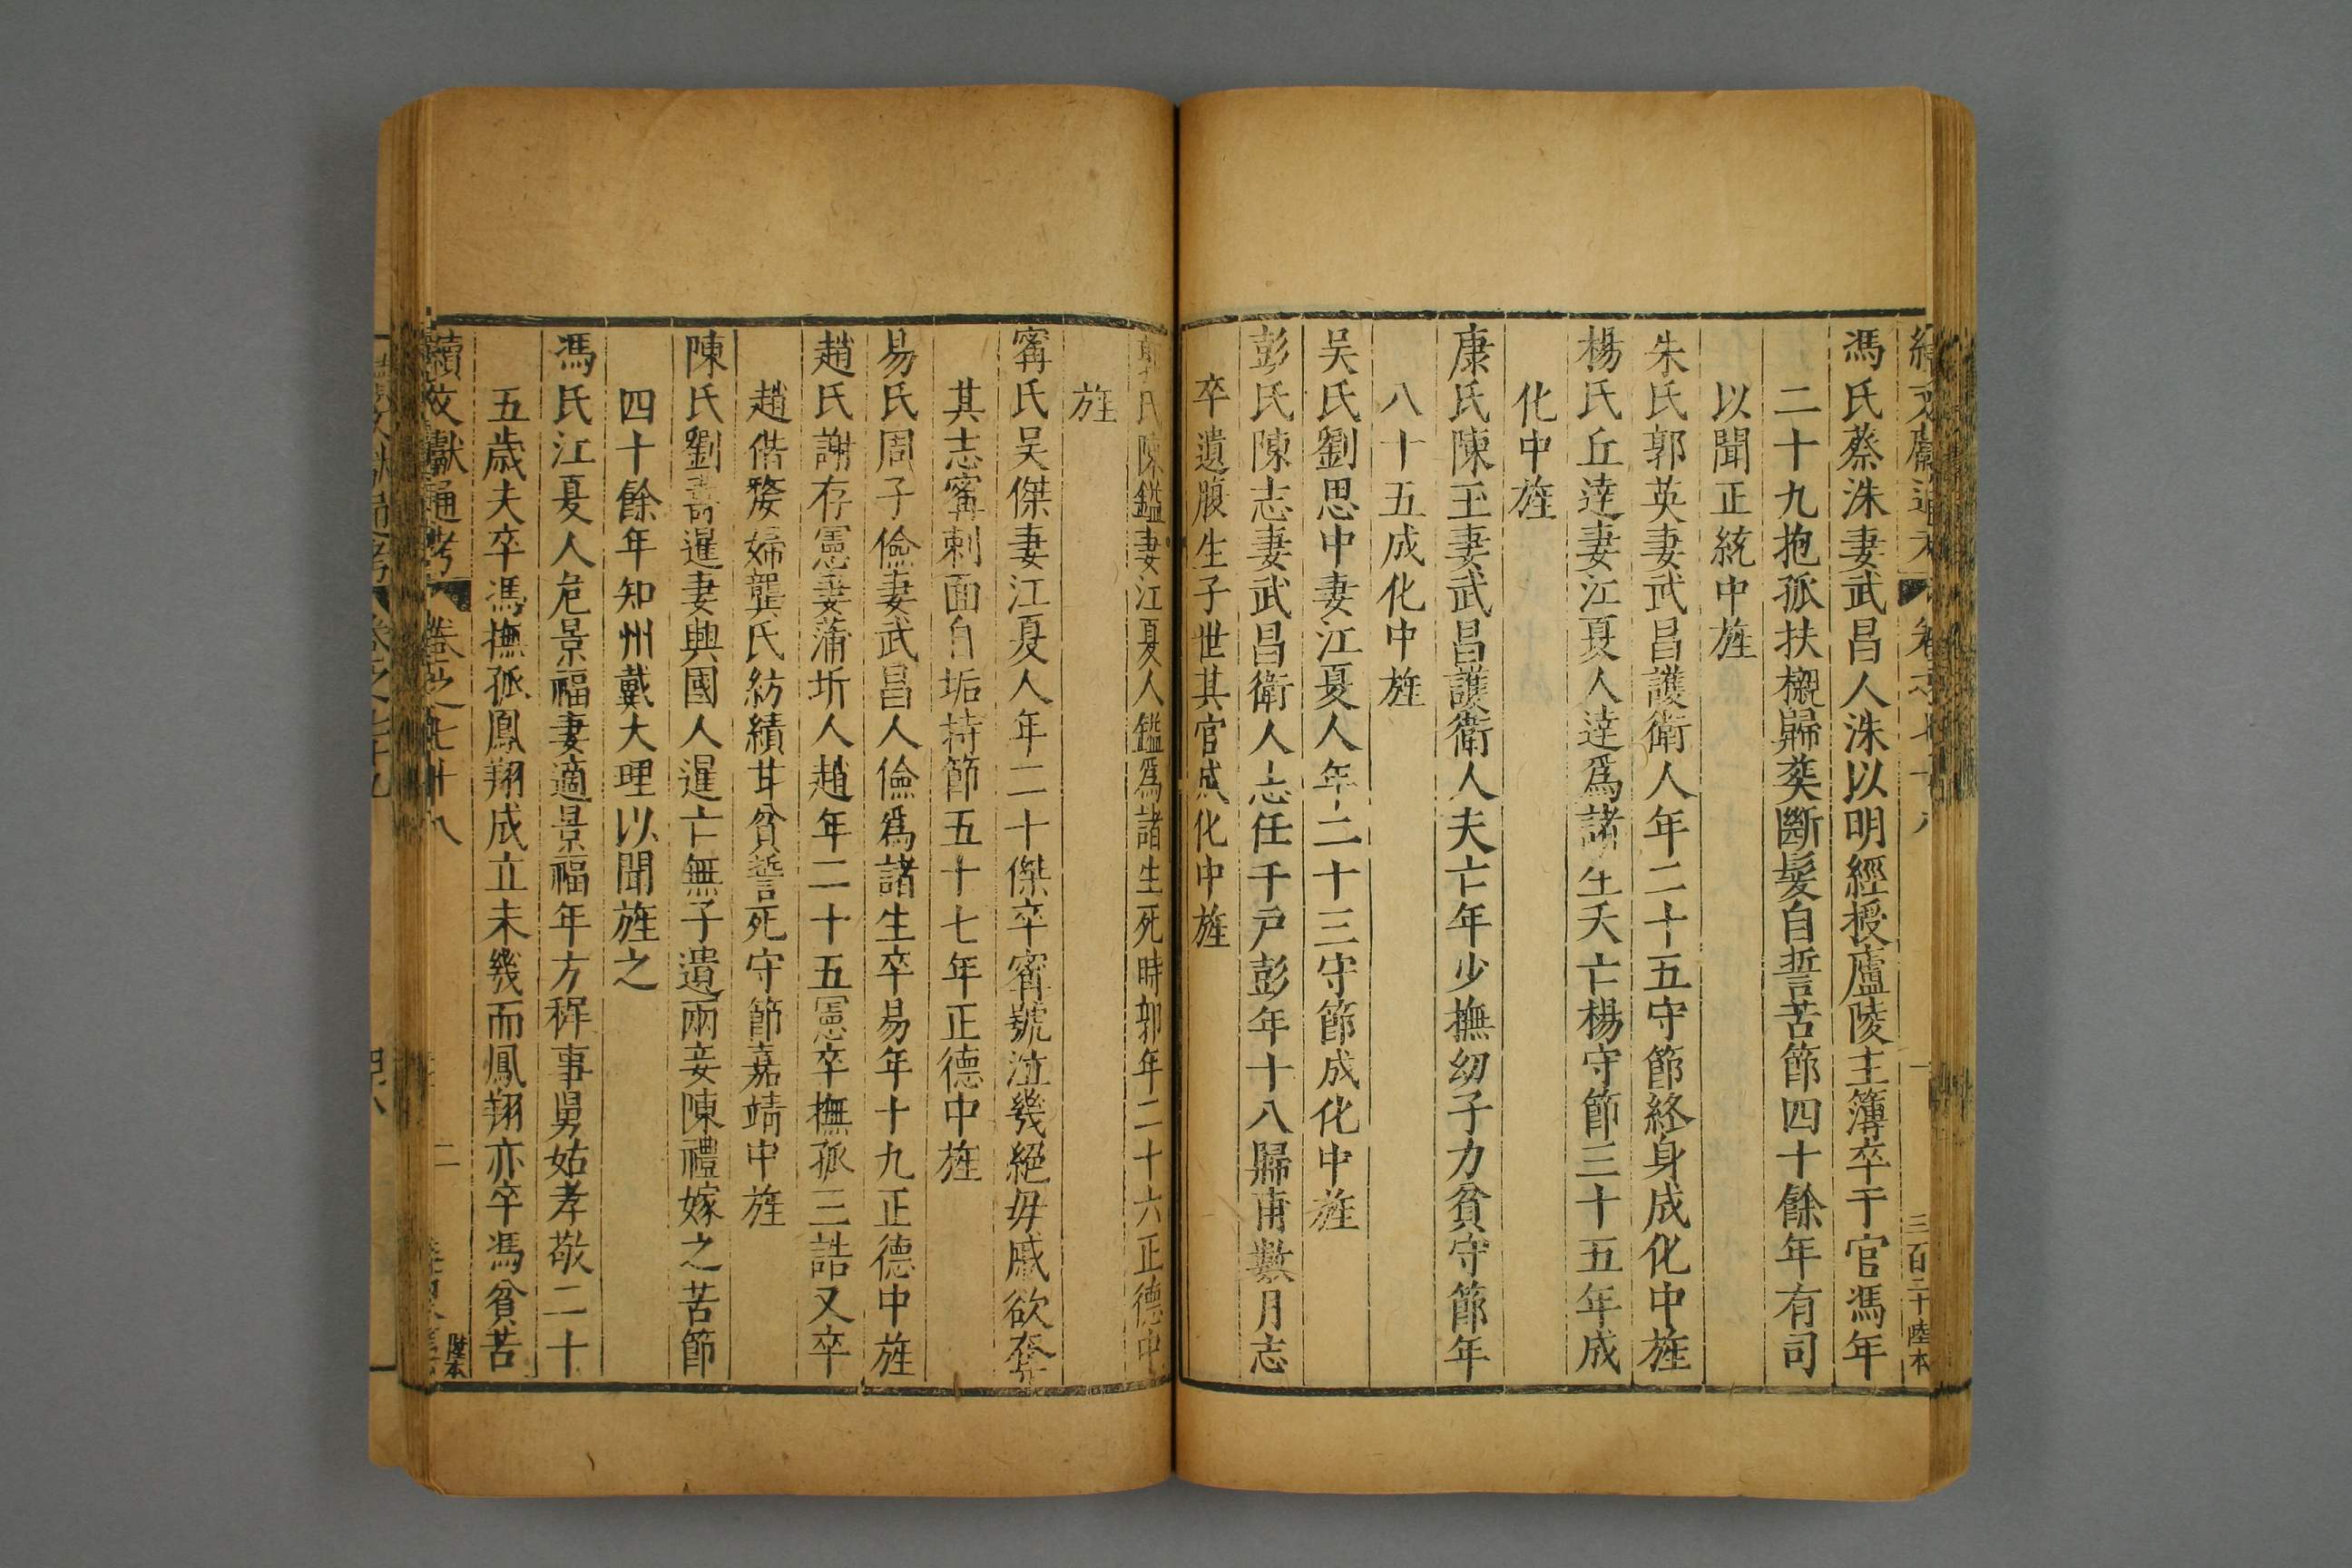 馮氏蔡洙妻武昌人洙以明經授廬陵主簿卒于官馮年
二十九抱孤扶櫬歸葬斷髮自誓苦節四十餘年有司
以聞正統中旌
朱氏郭英妻武昌護衛人年二十五守節終身成化中旌
楊氏丘達妻江夏人達爲諸生夭亡楊守節三十五年成
化中旌
康氏陳玉妻武昌護衛人夫亡年少撫幼子力貧守節年
八十五成化中旌
吳氏劉思中妻江夏人年二十三守節成化中旌
彭氏陳志妻武昌衛人志任千戶彭年十八歸甫數月志
卒遺腹生子世其官成化中旌
郭氏陳鑑妻江夏人鑑爲諸生死時郭年二十六正德中
旌
甯氏吴傑妻江夏人年二十傑卒甯號泣幾絕毋戚欲奪
其志甯刺面自垢持節五十七年正德中旌
易氏周子儉妻武昌人儉爲諸生卒易年十九正德中旌
趙氏謝存憲妻蒲圻人趙年二十五憲卒撫孤三誥又卒
趙偕嫠婦龔氏紡績甘貧誓死守節嘉靖中旌
陳氏劉暹妻興國人暹亡無子遺兩妾陳禮嫁之苦節
四十餘年知州戴大理以聞旌之
馮氏江夏人危景福妻適景福年方穉事舅姑孝敬二十
五歲夫卒馮撫孤鳳翔成立未幾而鳳翔亦卒馮貧苦
續文獻通考 卷之七十八 二 陸本